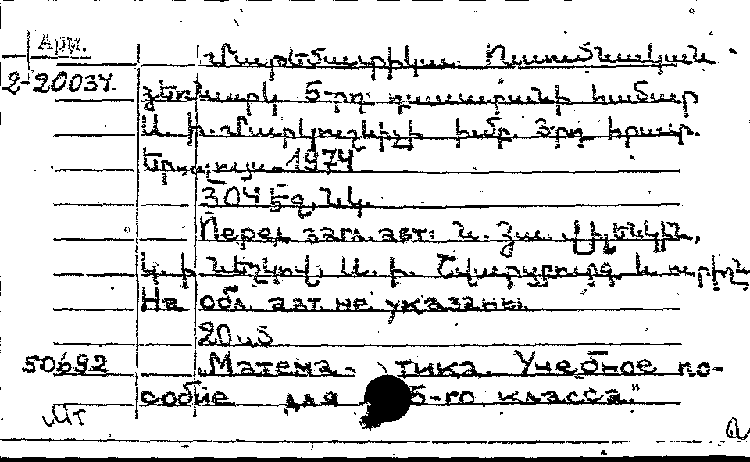 Арм.
Մաթեմատիկա. Ուսումնական
2-20037.
ձեռնարկ 5-րդ դասարանի համար
Ա. Ի. Մարկուշևիչի խմբ. 3-րդ հրատ.
Երևան. 1974
304 էջ, նկ.
Перед загл. авт: Ն. Յա. Վիլենկին,
Կ. Ի. Նեշկով, Ս. Ի. Շվարցբուրդ և ուրիշն
На обл. авт. не указаны
50692
„Матема- тика. Учебное по-
собие для 5-го класса."